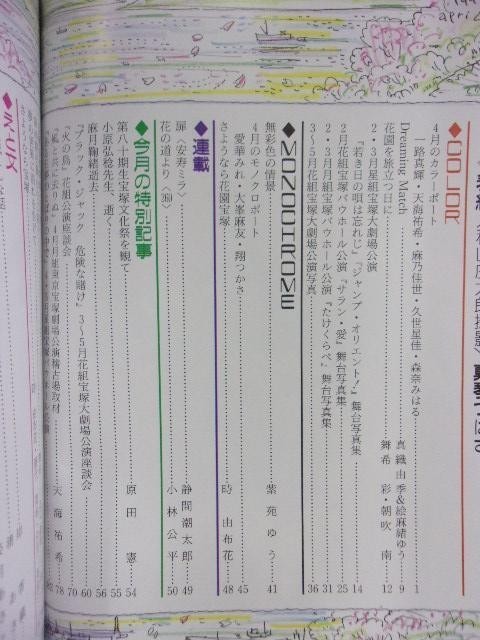 ◆COLOR
4月のカラーポート
一路真輝・天海祐希・麻乃佳世・久世星佳・森奈みはる 1
Dreaming Match 真織由季&絵麻緒ゆう 9
花園を旅立つ日に 舞希彩・朝吹南 12
2・3月星組宝塚大劇場公演
『若き日の唄は忘れじ』『ジャンプ・オリエント!』舞台写真集 14
2月花組宝塚バウホール公演『サラン・愛』舞台写真集 25
2・3月月組宝塚バウホール公演『たけくらべ』舞台写真集 31
3〜5月花組宝塚大劇場公演写真 36
◆MONOCHROME
無彩色の情景 紫苑ゆう 41
4月のモノクロポート
愛華みれ・大峯麻友・翔つかさ 45
さようなら花園宝塚 時由布花 48
◆連載
扉〈安寿ミラ〉 静間潮太郎 49
花の道より〈369〉 小林公平 50
◆今月の特別記事
第八十期生宝塚文化祭を観て 原田憲 54
小原弘稔先生、逝く 55
麻月鞠緒逝去 56
『ブラック・ジャック 危険な賭け』3〜5月花組宝塚大劇場公演座談会 60
『火の鳥』花組公演座談会 70
『風と共に去りぬ』4月月組東京宝塚劇場公演稽古場取材 78
天海祐希